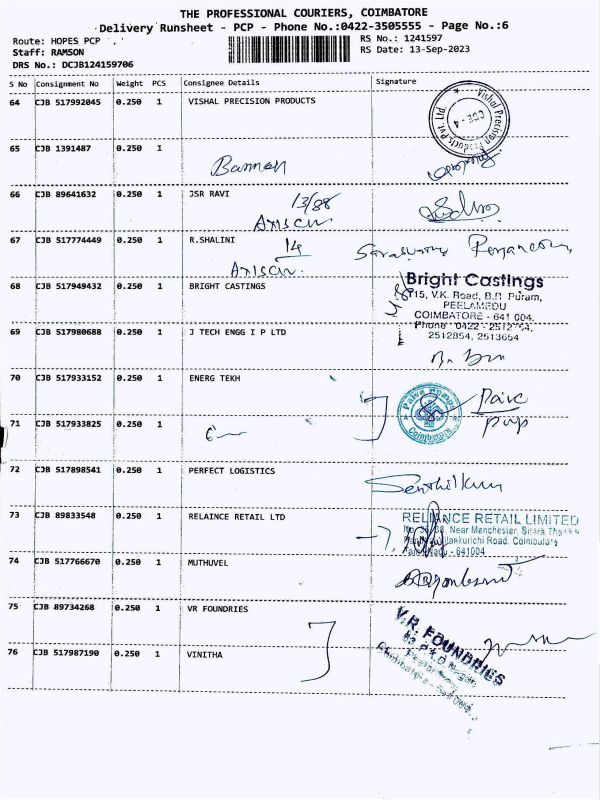 THE PROFESSIONAL COURIERS, COIMBATORE
Delivery Runsheet - PCP - Phone No.:0422-3505555 - Page No.:6
Route: HOPES PCP
RS No.: 1241597
Staff: RAMSON
RS Date: 13-Sep-2023
DRS No.: DCJB124159706
S No Consignment No Weight PCS Consignee Details Signature
64 CJB 517992045 0.250 1 VISHAL PRECISION PRODUCTS
Vishal Precision Products Pvt Ltd.
CBE - 4
65 CJB 1391487 0.250 1
66 CJB 89641632 0.250 1 JSR RAVI
13/88
67 CJB 517774449 0.250 1 R.SHALINI
14
68 CJB 517949432 0.250 1 BRIGHT CASTINGS
Bright Castings
115, V.K. Road, B.R. Puram,
PEELAMEDU
COIMBATORE - 641 004.
Phone : 0422 -
2512854, 2513654
69 CJB 517980688 0.250 1 J TECH ENGG I P LTD
70 CJB 517933152 0.250 1 ENERG TEKH
Coimbatore
71 CJB 517933825 0.250 1
72 CJB 517898541 0.250 1 PERFECT LOGISTICS
73 CJB 89833548 0.250 1 RELAINCE RETAIL LTD
RELIANCE RETAIL LIMITED
Near Manchester,
Road, Coimbatore
Nadu - 641004
74 CJB 517766670 0.250 1 MUTHUVEL
75 CJB 89734268 0.250 1 VR FOUNDRIES
V.R. FOUNDRIES
76 CJB 517987190 0.250 1 VINITHA